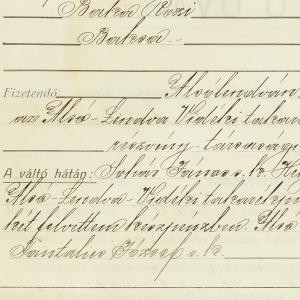 Baksa Rozi
Baksa.-
Fizetendő Alsólendván
az Alsó-Lendva Vidéki taka
részvény-társaság
A váltó hátán: Sohár János s. k.
Alsó-Lendva-Vidéki takarékp
két felvettem készpénzben. Alsó
József s. k.